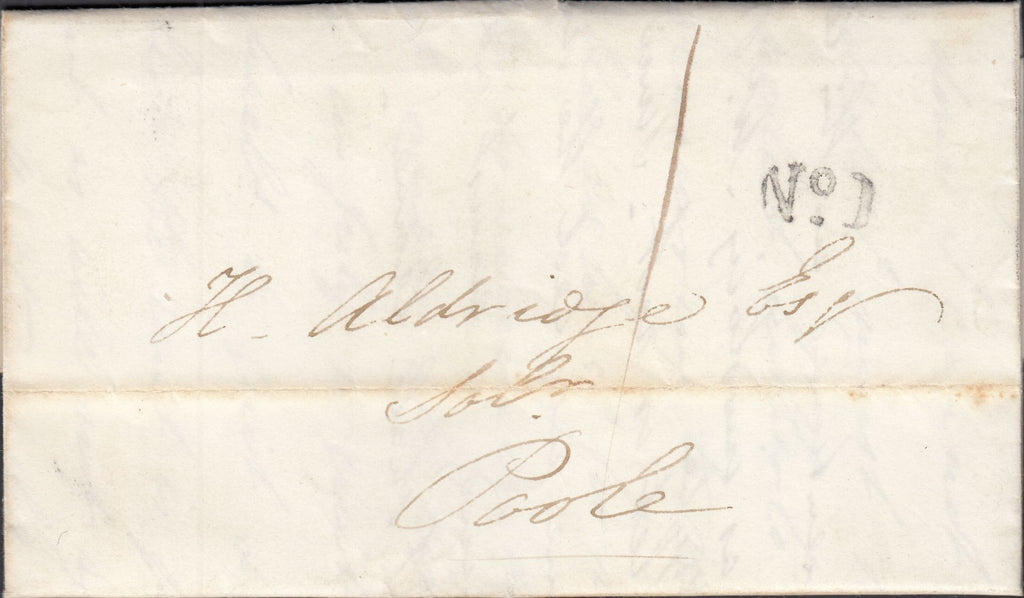 No. 1
1
H. Aldridge Esqr
Solr.
Poole